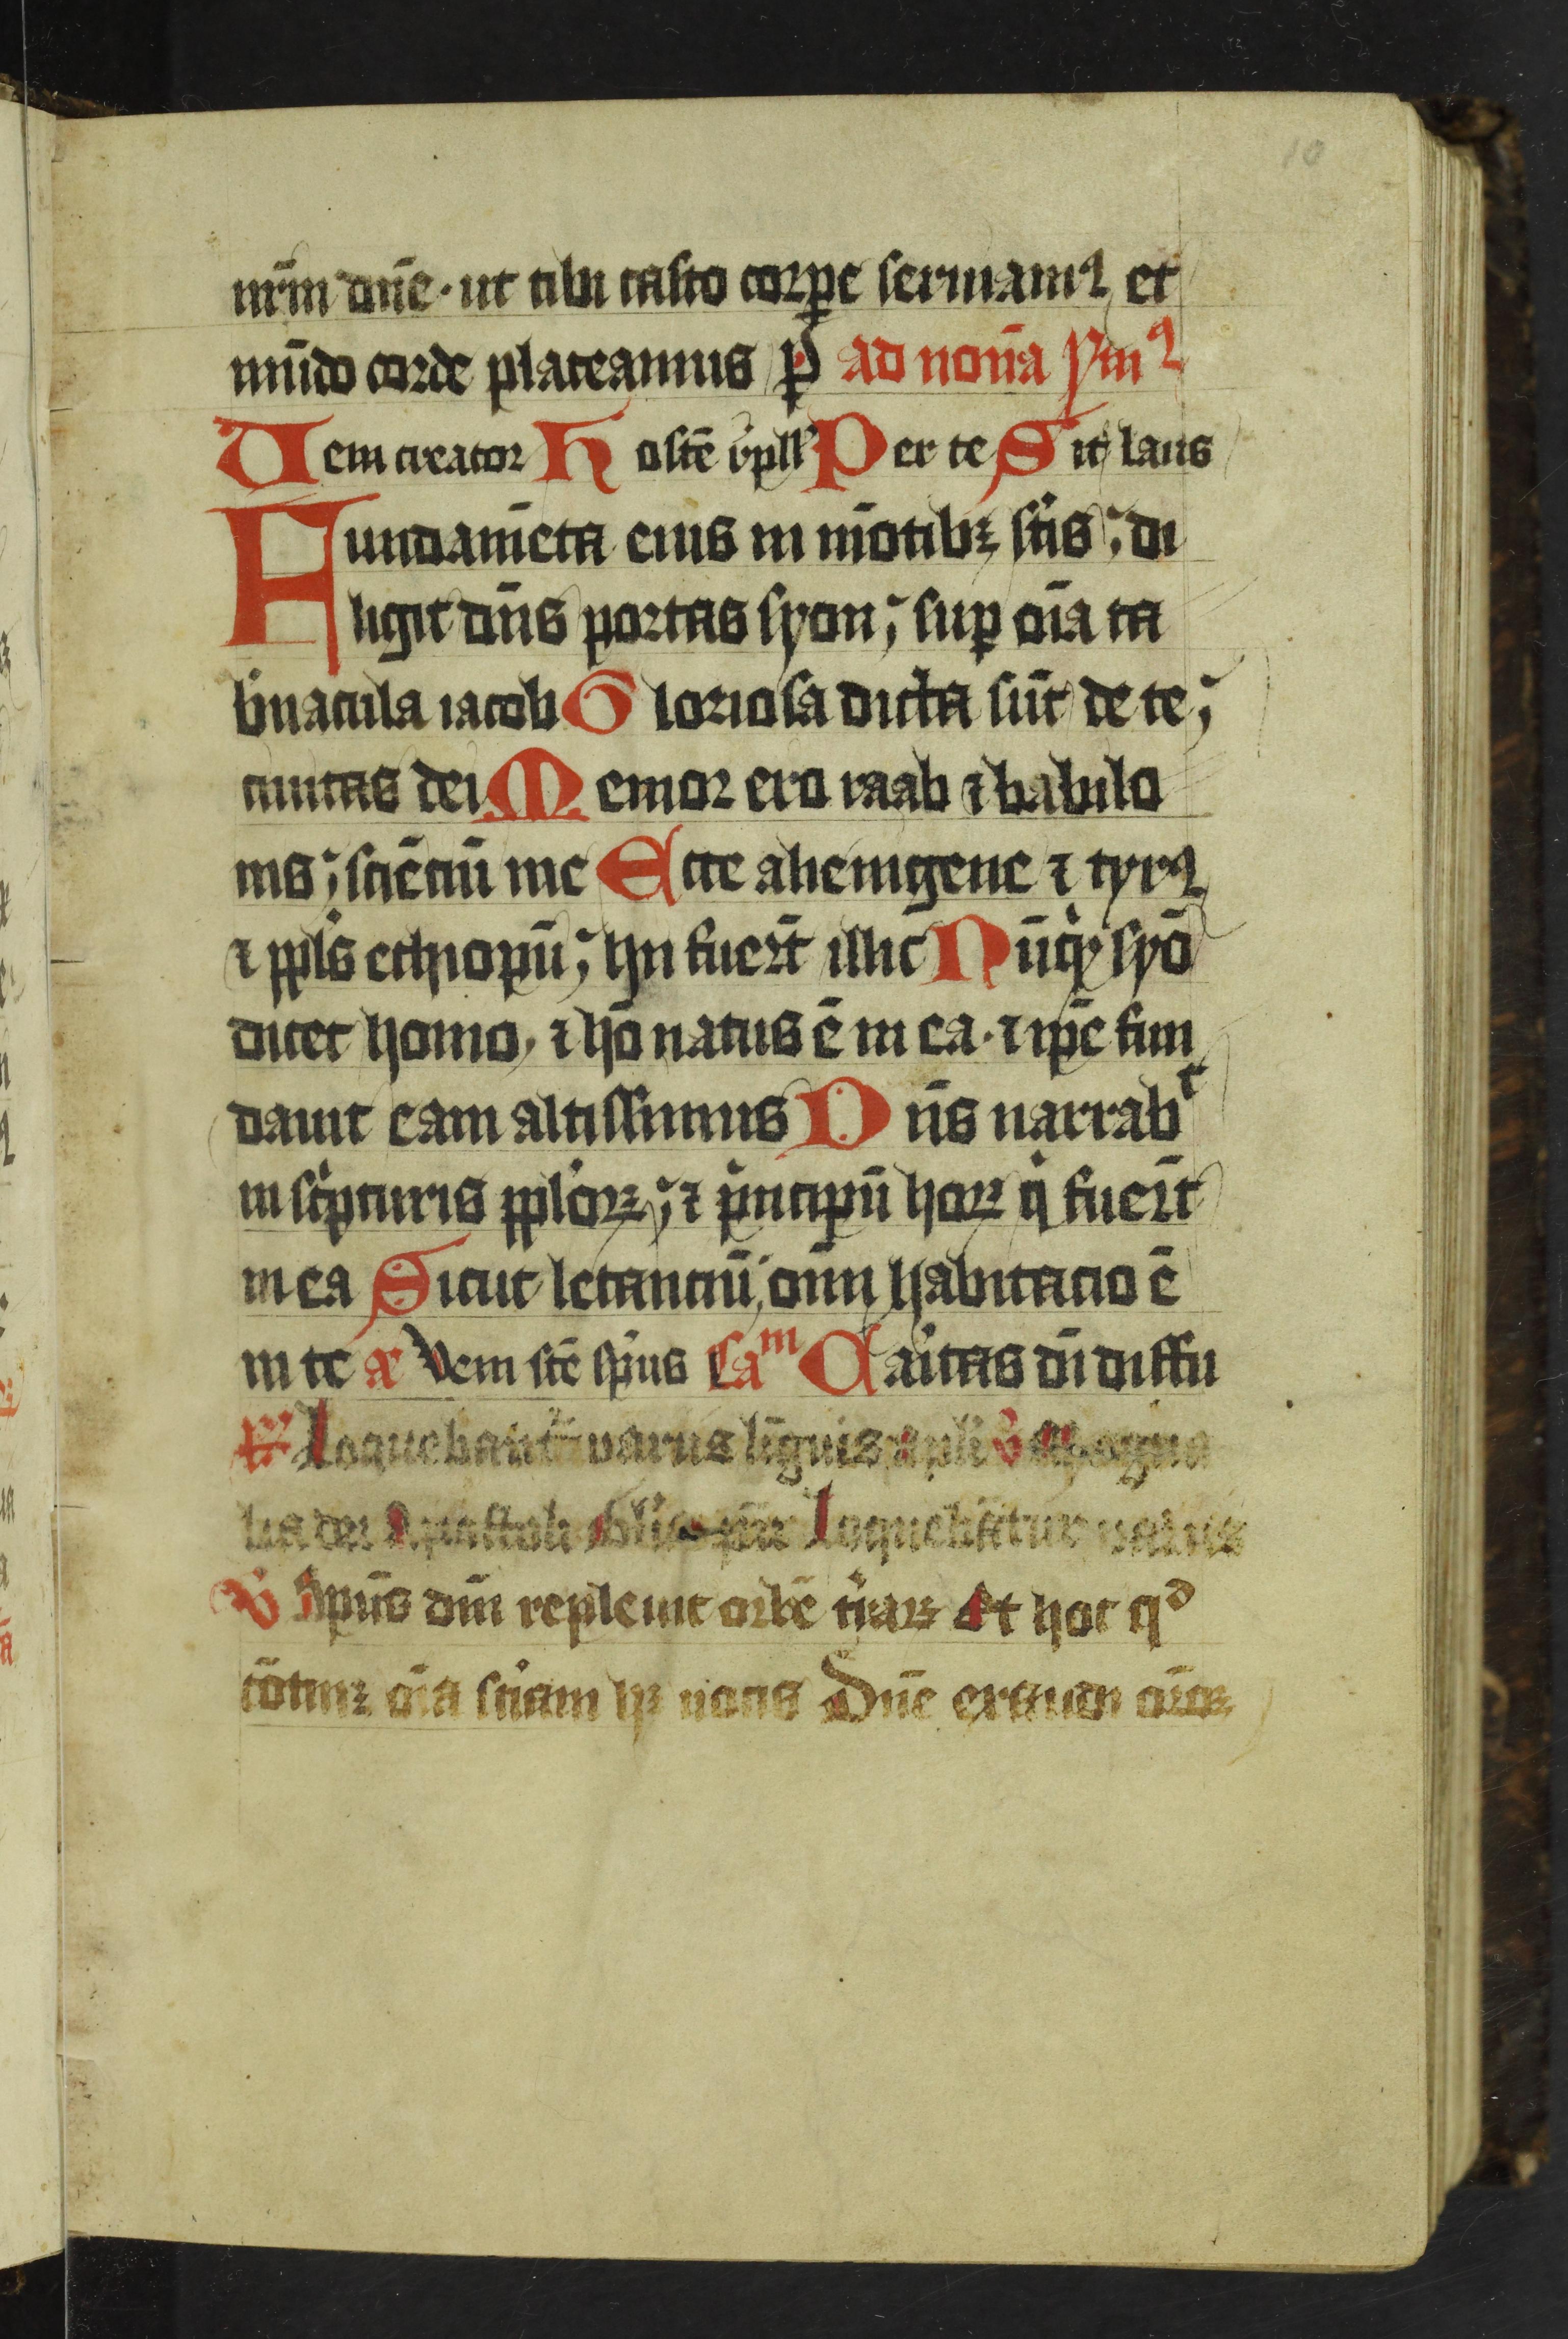 10
nr̄m dn̄e · ut tibi casto corꝑe seruiamꝰ et
mūdo corde placeamus ꝑ ad nonā ymꝰ
Veni creator Hostē r̾pell' Per te Sit laus
Fundamēta eius in mōtibꝫ sc̄is ; di
ligit dn̄s portas syon ; suꝑ oīa ta
b̾nacula iacob Gloriosa dicta sūt de te ;
ciuitas dei Memor ero raab ⁊ babilo
nis ; sciēciū me Ecce alienigene ⁊ tyrꝰ
⁊ ppl̾s ethiopū ; hii fuer̄t illic Nūqͥd syō
dicet homo · ⁊ hō natus ē in ea · ⁊ ip̄e fun
dauit eam altissimus Dn̄s narrabᵗ
in scͥpturis pplo̾rꝫ ; ⁊ pͥncipū horꝫ qͥ fuer̄t
in ea Sicut letanciū oīm habitacio ē
in te a Veni sc̄e spūs Caᵐ Caritas dī diffu
Loquebantᷣ variis līguis apl̾i v̾ magna
lia dei Apostoli Gl̾ia pr̄i Loquebātur variis
V̾ Spūs dn̄i repleuit orbē t̾rarꝫ Et hoc qᵈ
cōtinꝫ oīa sciam hꝫ uocis Dn̄e exaudi or̄oꝫ